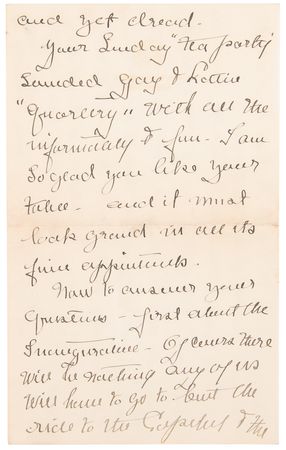 and yet dread.
Your Sunday "tea party"
Sounded gay & Lottie
"Quarity" with all the
informality & fun - I am
So glad you like your
Table - and it must
look grand in all its
fine appointments.
Now to answer your
Questions - first about the
Inauguration - Of course there
will be nothing any of us
will have to go to but the
ride to the Capitol & the